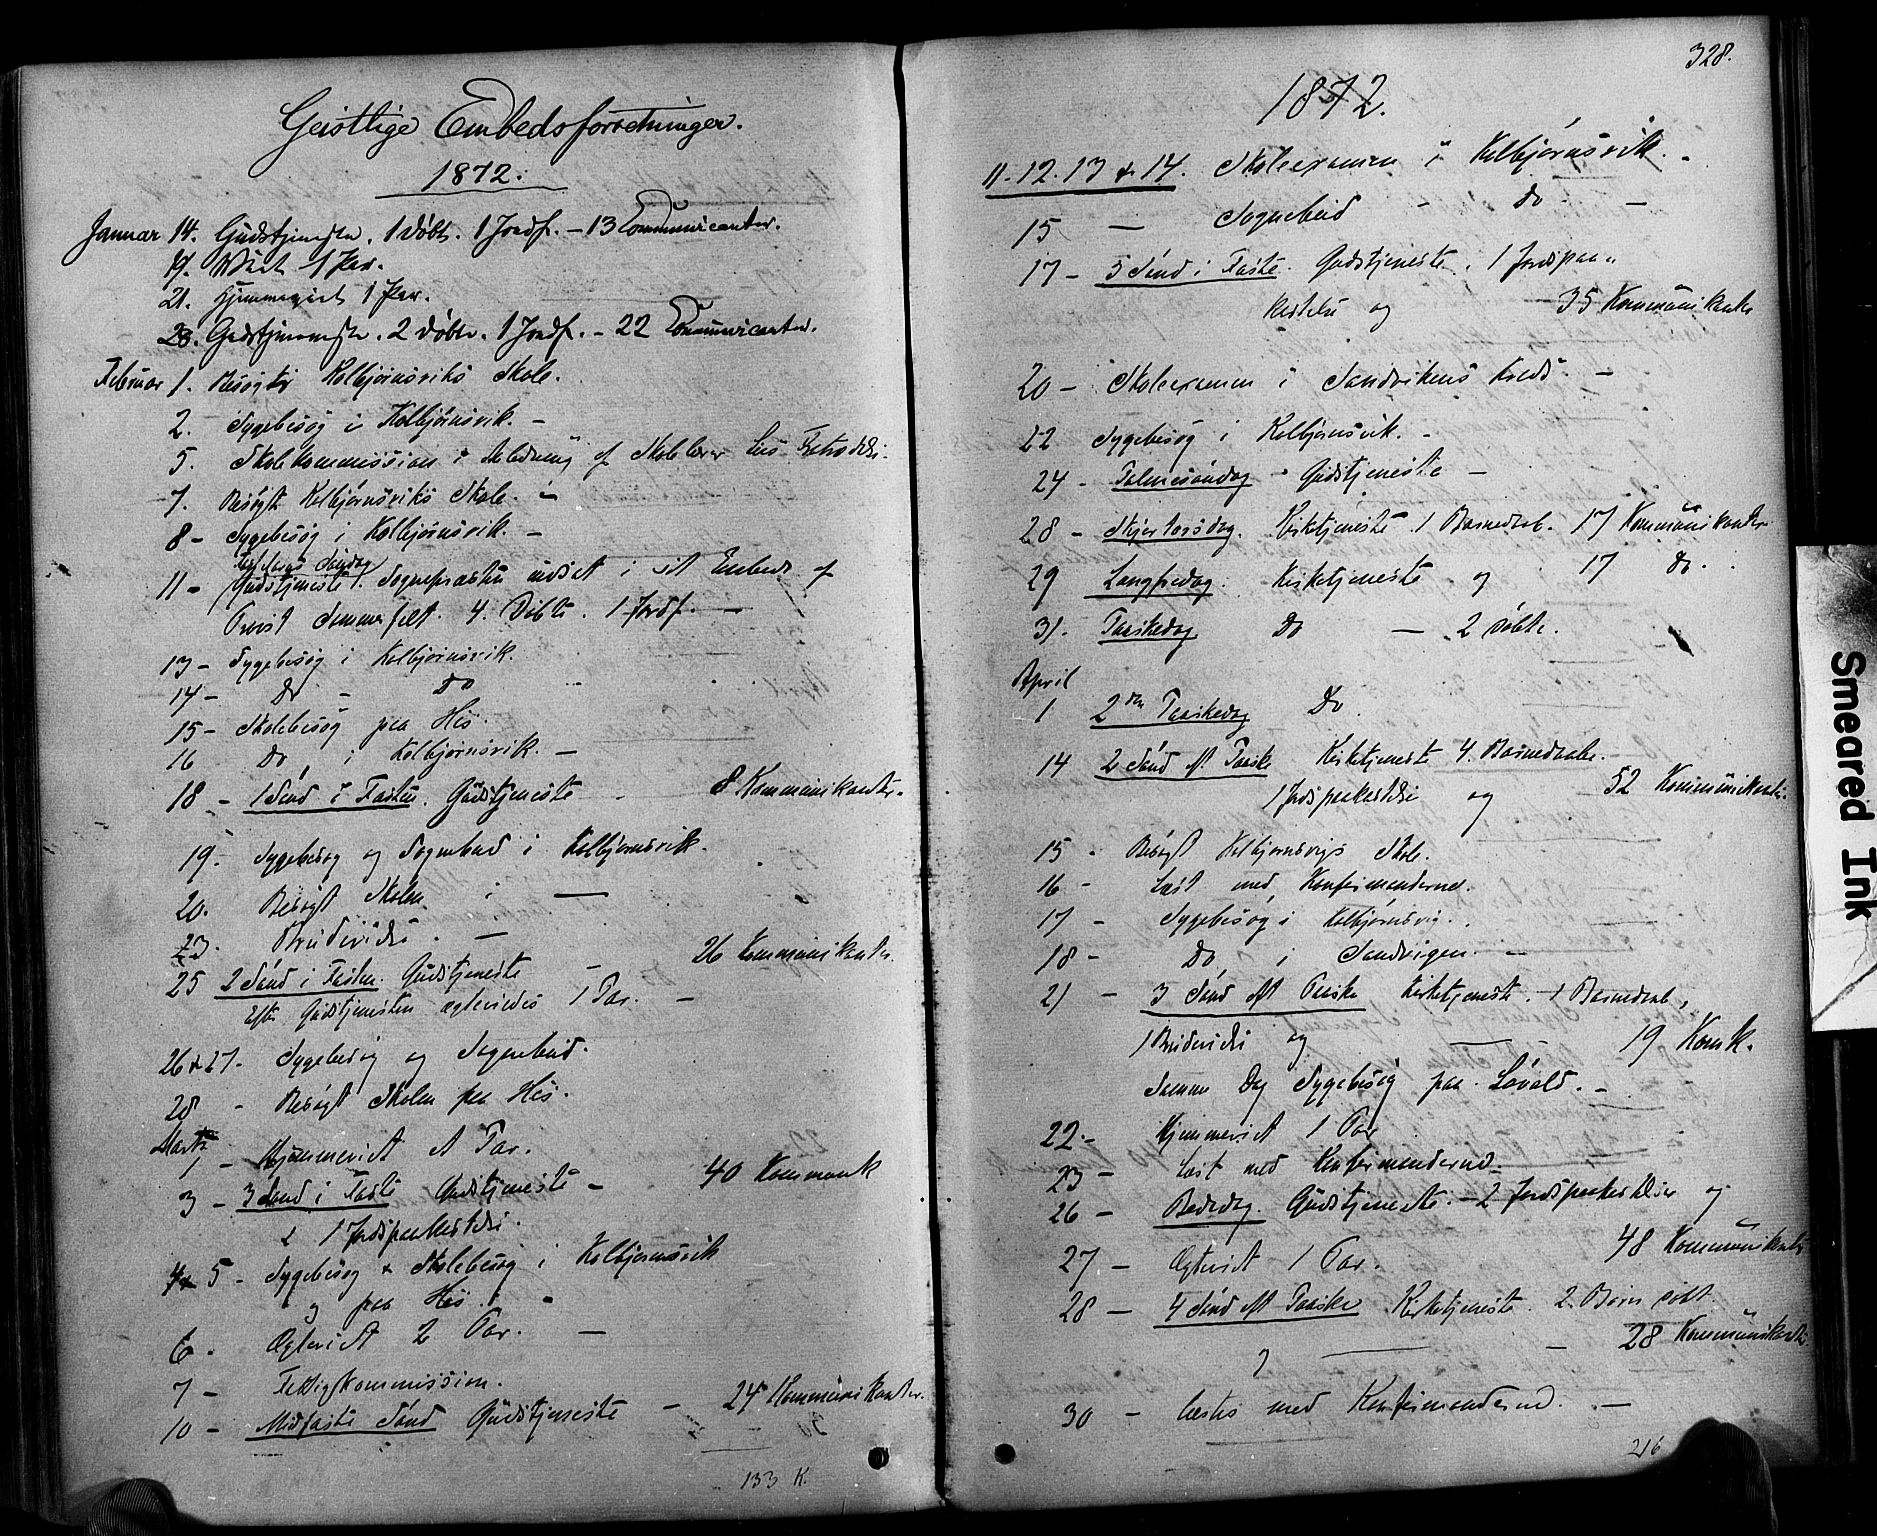 Geistlige Embedsforretninger.
1872.
Januar 14. Gudstjeneste. 1 døbt. 1 Jordf. – 13 Communicanter.
19. Viet 1 Par.
21. Hjemmeviet 1 Par.
28. Gudstjeneste. 2 døbte. 1 Jordf. – 22 Communicanter.
Februar 1. Besøgt Kolbjørnsviks Skole.
2. Sygebesøg i Kolbjørnsvik. –
5. Skolekommission i Anledning af Skolelærer
7. Besøgt Kolbjørnsviks Skole. –
8 – Sygebesøg i Kolbjørnsvik. –
Fastelavns Søndag
11 – Gudstjeneste. Sognepræsten indsat i sit Embede af
Provst Sommerfelt. 4. Døbte. 1 Jordf. –
13 – Sygebesøg i Kolbjørnsvik.
14 – Do – Do
15 – Skolebesøg paa His.
16 Do i Kolbjørnsvik. –
18 – 1 Sønd i Fasten. Gudstjeneste – 8 Kommunikanter.
19. Sygebesøg og Sognebud i Kolbjørnsvik.
20. Besøgt Skolen i —
23. Brudevielse. –
25 2 Sønd i Fasten. Gudstjeneste – 26 Kommunikanter.
efter Gudstjenesten ægteviedes 1 Par. –
26 & 27. Sygebesøg og Sognebud.
28 – Besøgt Skolen paa His.
Marts
1 – Hjemmeviet et Par.
3 – 3 Sønd i Faste Gudstjeneste – 40 Kommunk
& 1 Jordspaakastelse.
4 & 5 – Sygebesøg & Skolebesøg i Kolbjørnsvik
og paa His.
6. Ægteviet 2 Par. –
7 – Fattigkommission.
10 – Midfaste Sønd Gudstjeneste – 24 Kommunikanter.
133 K.
328.
1872.
11. 12. 13 & 14. Skoleexamen i Kolbjørnsvik. –
15 – Sognebud – Do –
17 – 5 Sønd i Faste. Gudstjeneste. 1 Jordspaa-
kastelse og 35 Kommunikanter
20 – Skoleexamen i Sandvikens Kreds. –
22 Sygebesøg i Kolbjørnsvik. –
24 – Palmesøndag – Gudstjeneste –
28 – Skjertorsdag. Kirketjeneste 1 Barnedaab. 17 Kommunikanter
29 Langfredag. Kirketjeneste og 17 Do.
31. Paaskedag Do – 2 døbte.
April
1 2den Paaskedag Do
14 2 Sønd eft Paaske Kirketjeneste 4. Barnedaabe.
1 Jordspaakastelse og 52 Kommunikanter.
15 – Besøgt Kolbjørnsvigs Skole.
16 – Læst med Konfirmanderne.
17 – Sygebesøg i Kolbjørnsvig.
18 – Do i Sandvigen. –
21 – 3 Sønd eft Paaske Kirketjeneste. 1 Barnedaab,
1 Brudevielse og — 19 Komk.
Samme Dag Sygebesøg paa Løvold. –
22. – Hjemmeviet 1 Par
23 – Læst med Konfirmanderne.
26 – Bededag. Gudstjeneste. – 2 Jordspaakastelser og
48 Kommunikanter
27 – Ægteviet 1 Par.
28 – 4 Sønd eft Paaske Kirketjeneste. 2. Børn døbt.
28 Kommunikanter
30 – Læstes med Konfirmanderne. –
216
Smeared Ink